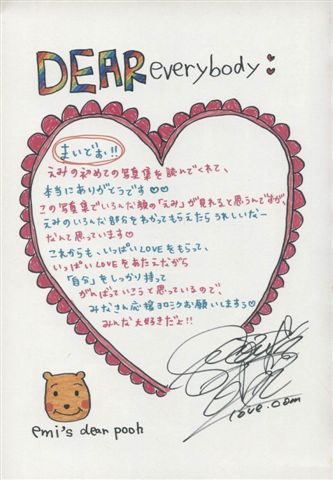 DEAR everybody
まいどぉ!!
えみの初めての写真集を読んでくれて、
本当にありがとうです♡♡
この写真集でいろんな顔の「えみ」が見れると思うんですが、
えみのいろんな部分をわかってもらえたらうれしいなー
なんて思っています♡
これからも、いっぱいLOVEをもらって、
いっぱいLOVEをあたえながら
「自分」をしっかり持って
がんばっていこうと思っているので
みなさん応援ヨロシクお願いしますぅ♡
みんな大好きだよ!!
love.com
emi's dear pooh